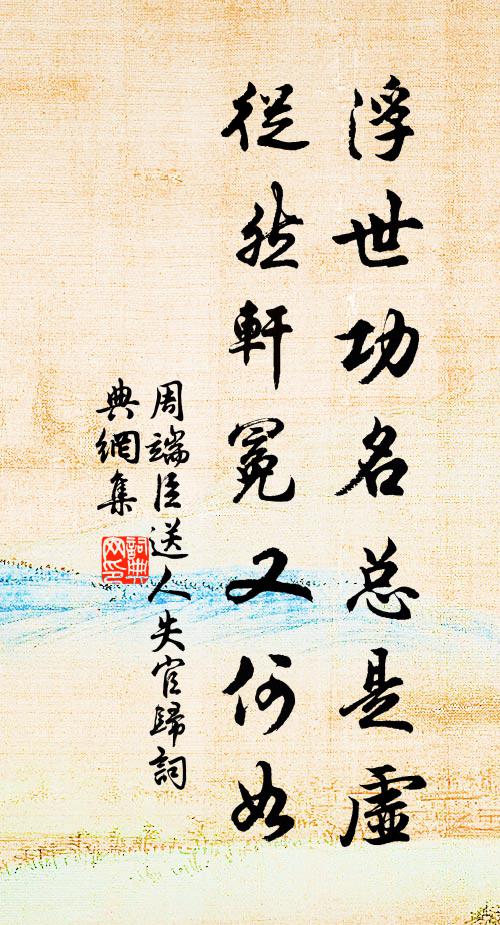 浮世功名总是虛
從然軒冕又何如
周端臣送人失官歸詞
典網集
詞典網印